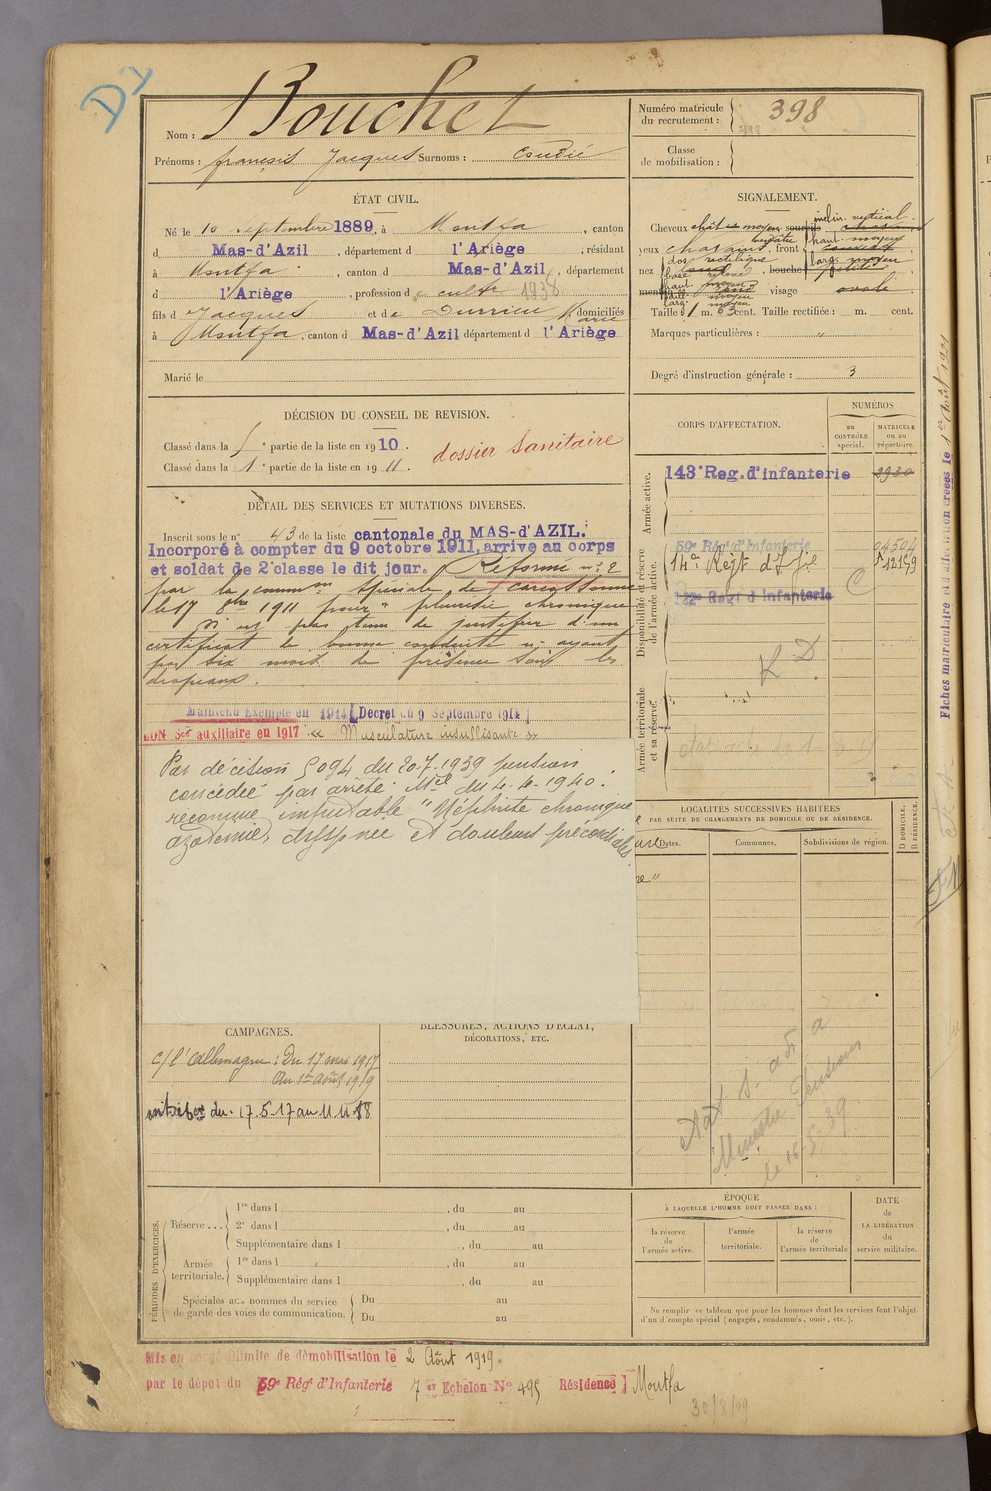 Bouchet
Nom :
Prénoms : françois Jacques Surnoms :
Numéro matricule du recrutement : 398
Classe de mobilisation :
ÉTAT CIVIL.
Né le 10 Septembre 1889, à Montfa, canton
d Mas-d'Azil, département d l'Ariège, résidant
à Montfa, canton d Mas-d'Azil, département
d l'Ariège, profession d cultr 1938
fils d Jacques et de Durrieu Marie domiciliés
à Montfa, canton d Mas-d'Azil département d l'Ariège
Marié le
SIGNALEMENT.
Cheveux chât moyen sourcils
inclin. vertical
yeux front haut. moyen
dos rectiligne larg. moyen
nez bouche
menton visage ovale
Taille 1 m. 63 cent. Taille rectifiée : m. cent.
Marques particulières :
Degré d'instruction générale : 3
DÉCISION DU CONSEIL DE REVISION.
Classé dans la partie de la liste en 1910.
Classé dans la 1e partie de la liste en 1911.
dossier Sanitaire
DÉTAIL DES SERVICES ET MUTATIONS DIVERSES.
Inscrit sous le n° 43 de la liste cantonale du MAS-d'AZIL.
Incorporé à compter du 9 octobre 1911, arrivé au corps
et soldat de 2e classe le dit jour. Réformé n° 2
par la comm on spéciale de Carcassonne
le 17 8bre 1911 pour "pleurésie chronique
N'est pas tenu de justifier d'un
certificat de bonne conduite n'ayant
pas six mois de présence sous les
drapeaux.
Maintenu Exempté en 1914 [Decret du 9 Septembre 1914]
BON Sce auxiliaire en 1917 « Musculature insuffisante »
Par décision 5094 du 20.7.1939 pension
concédée par arrêté Mel du 4-4-1940.
reconnue imputable "Néphrite chronique
azotémie, dyspnée et douleurs précordiales
CORPS D'AFFECTATION.
NUMÉROS
au CONTRÔLE spécial.
MATRICULE ou au répertoire.
Armée active.
143e Reg. d'infanterie 2930
Disponibilité et réserve de l'armée active.
59e Régt d'Infanterie 04504
14e Régt d'Infie 12159
Regt d'Infanterie
Armée territoriale et sa réserve.
LOCALITÉS SUCCESSIVES HABITÉES
PAR SUITE DE CHANGEMENTS DE DOMICILE OU DE RÉSIDENCE.
Dates. Communes. Subdivisions de région.
D DOMICILE. R RÉSIDENCE.
CAMPAGNES.
c/ l'Allemagne : Du 17 mai 1917
Au 1er Août 1919
du 17.5.17 au 11.11.18
BLESSURES, ACTIONS D'ÉCLAT,
DÉCORATIONS, ETC.
Ministre Pensions
le 16-5-39
PÉRIODES D'EXERCICES.
Réserve ... 1re dans l , du au
2e dans l , du au
Supplémentaire dans l , du au
Armée territoriale. 1re dans l , du au
Supplémentaire dans l , du au
Spéciales aux hommes du service de garde des voies de communication. Du au
Du au
ÉPOQUE
À LAQUELLE L'HOMME DOIT PASSER DANS :
la réserve de l'armée active.
l'armée territoriale.
la réserve de l'armée territoriale
DATE de LA LIBÉRATION du service militaire.
Ne remplir ce tableau que pour les hommes dont les services font l'objet
d'un décompte spécial (engagés, condamnés, omis, etc.).
Mis en congé illimité de démobilisation le 2 Août 1919.
par le dépôt du 59e Régt d'Infanterie 7 er Echelon N° 495 Résidence Montfa
30/8/19